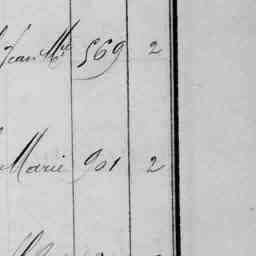 Jean Mie 569 2
Marie 901 2